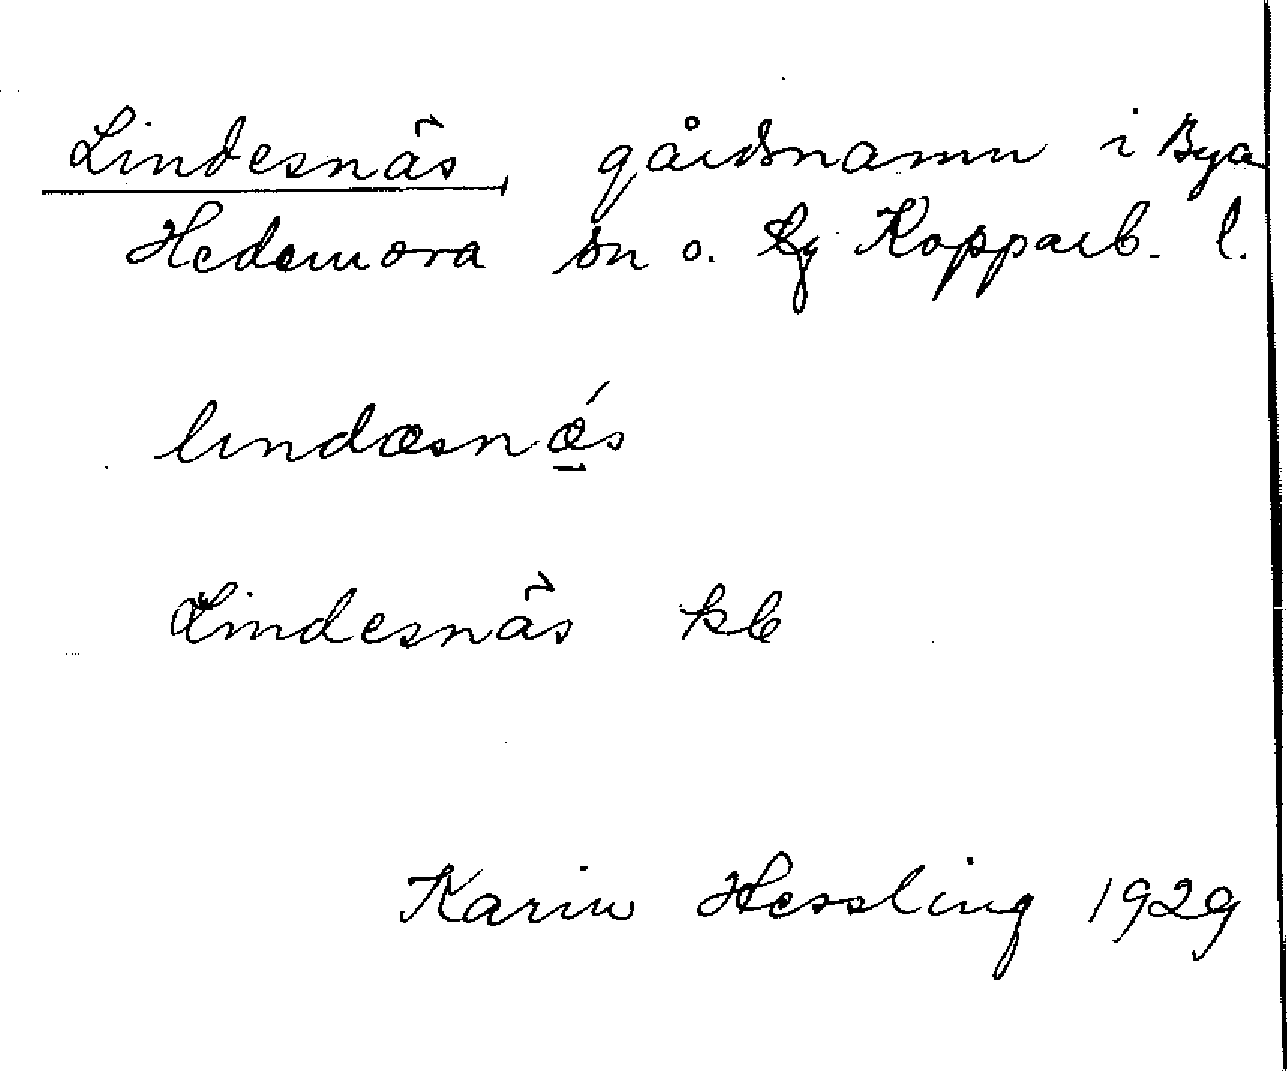 Lindesnäs, gårdsnamn i Bya
Hedemora sn o. tg Kopparb. l.
lındæsnǽs
Lindesnäs kb
Karin Hessling 1929